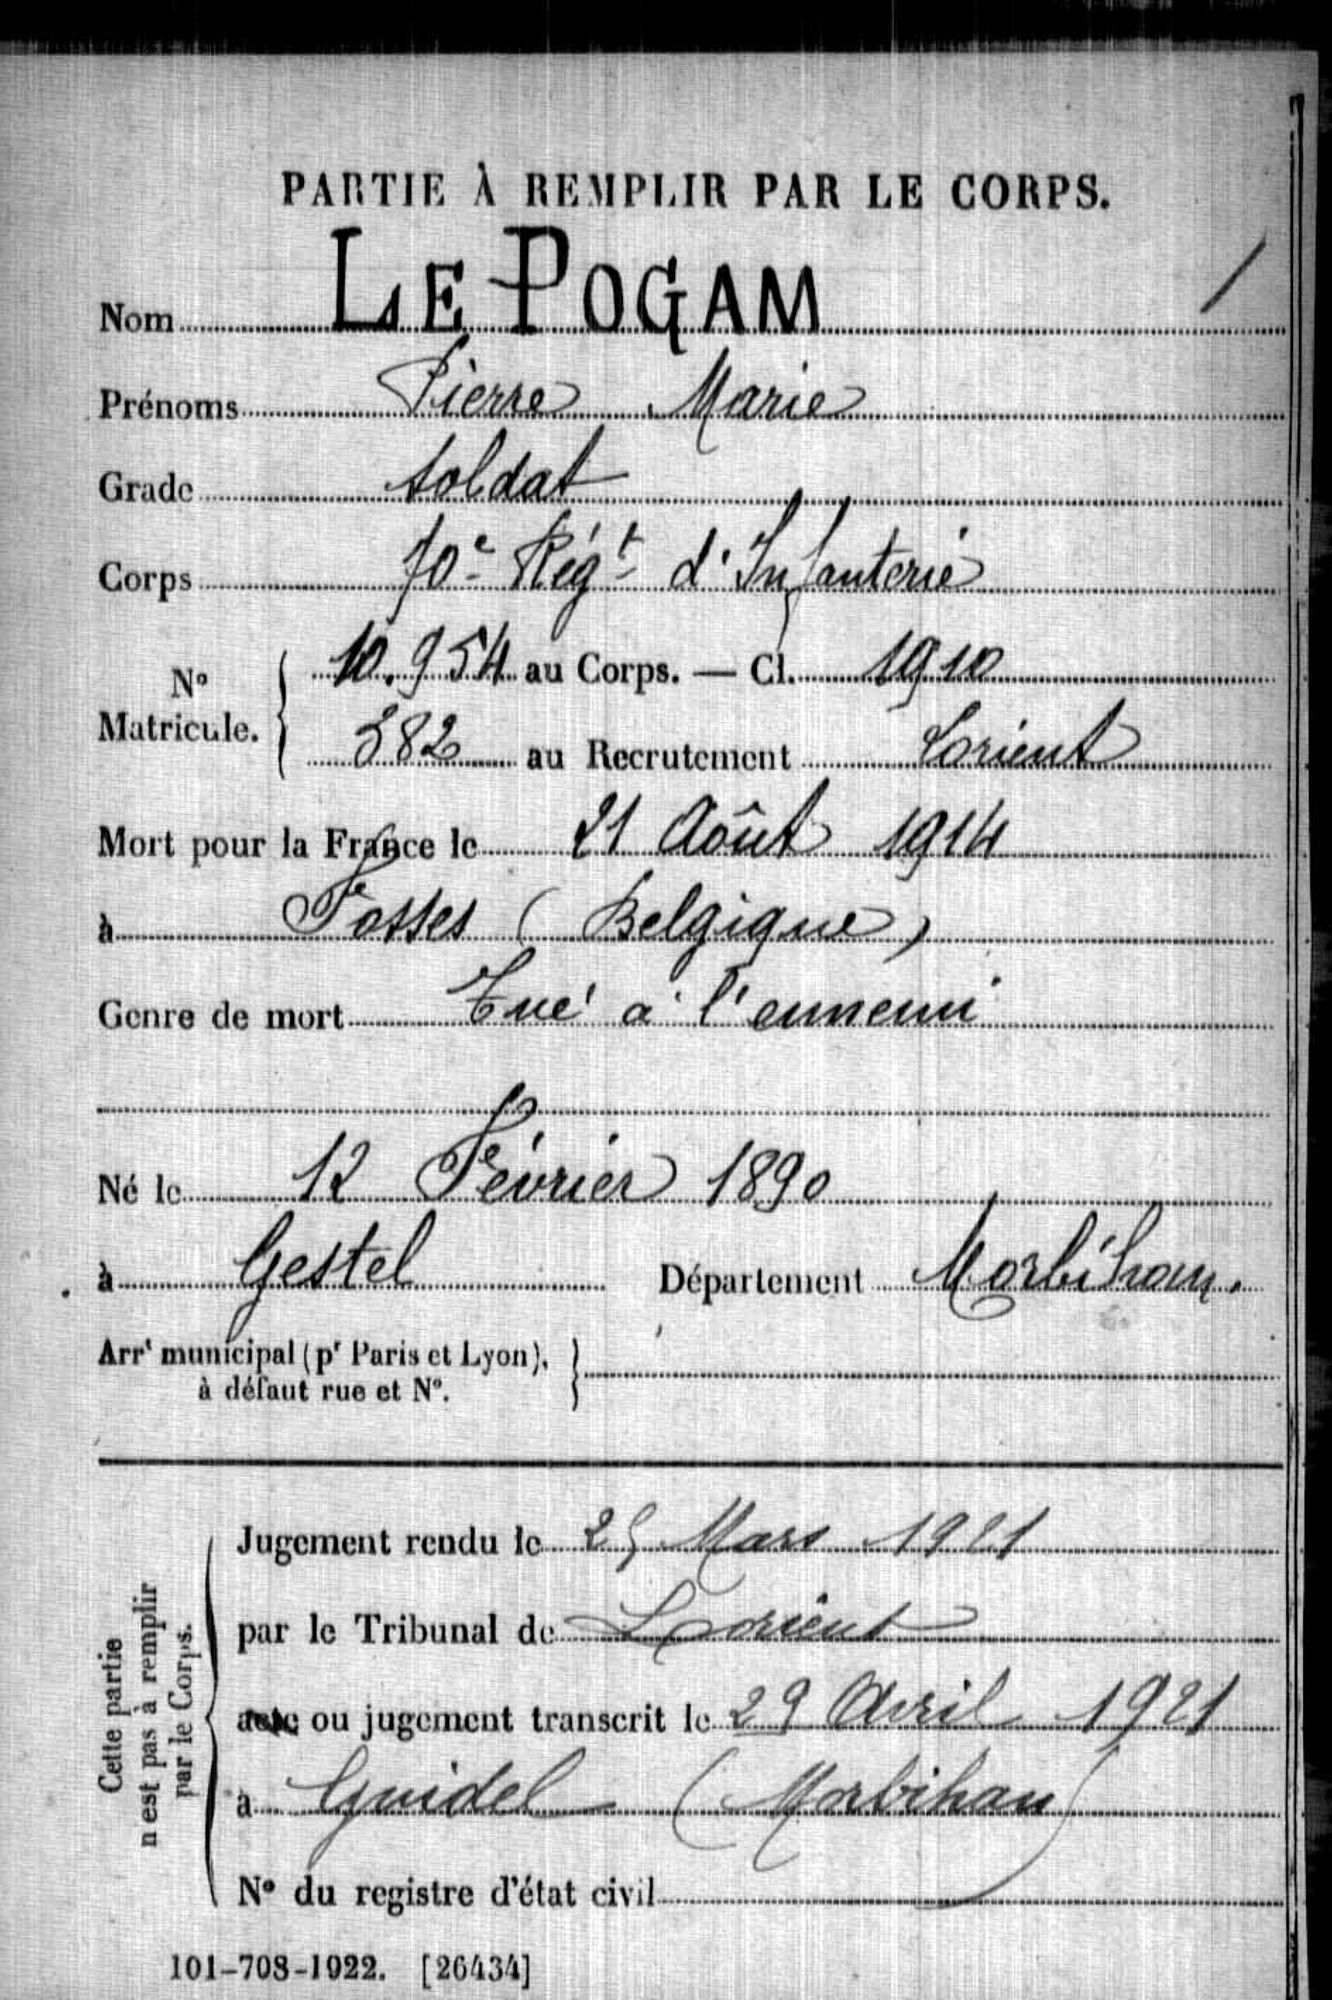 PARTIE À REMPLIR PAR LE CORPS.
Nom LE POGAM 1
Prénoms Pierre Marie
Grade Soldat
Corps 70e Régt d'Infanterie
No Matricule. { 10.954 au Corps. — Cl. 1910
382 au Recrutement Lorient
Mort pour la France le 21 Août 1914
à Fosses (Belgique)
Genre de mort Tué à l'ennemi
Né le 12 Février 1890
à Gestel Département Morbihan.
Arrt municipal (pr Paris et Lyon), }
à défaut rue et No.
Cette partie
n'est pas à remplir
par le Corps.
Jugement rendu le 25 Mars 1921
par le Tribunal de Lorient
acte ou jugement transcrit le 29 Avril 1921
à Guidel (Morbihan)
No du registre d'état civil
101-708-1922. [26434]